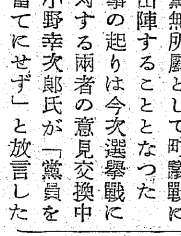 黨無所屬として町
出陣することとなつた
事の起りは今次選擧戰に
對する兩者の意見交換中
小野幸次郞氏が「黨員を
當てにせず」と放言した